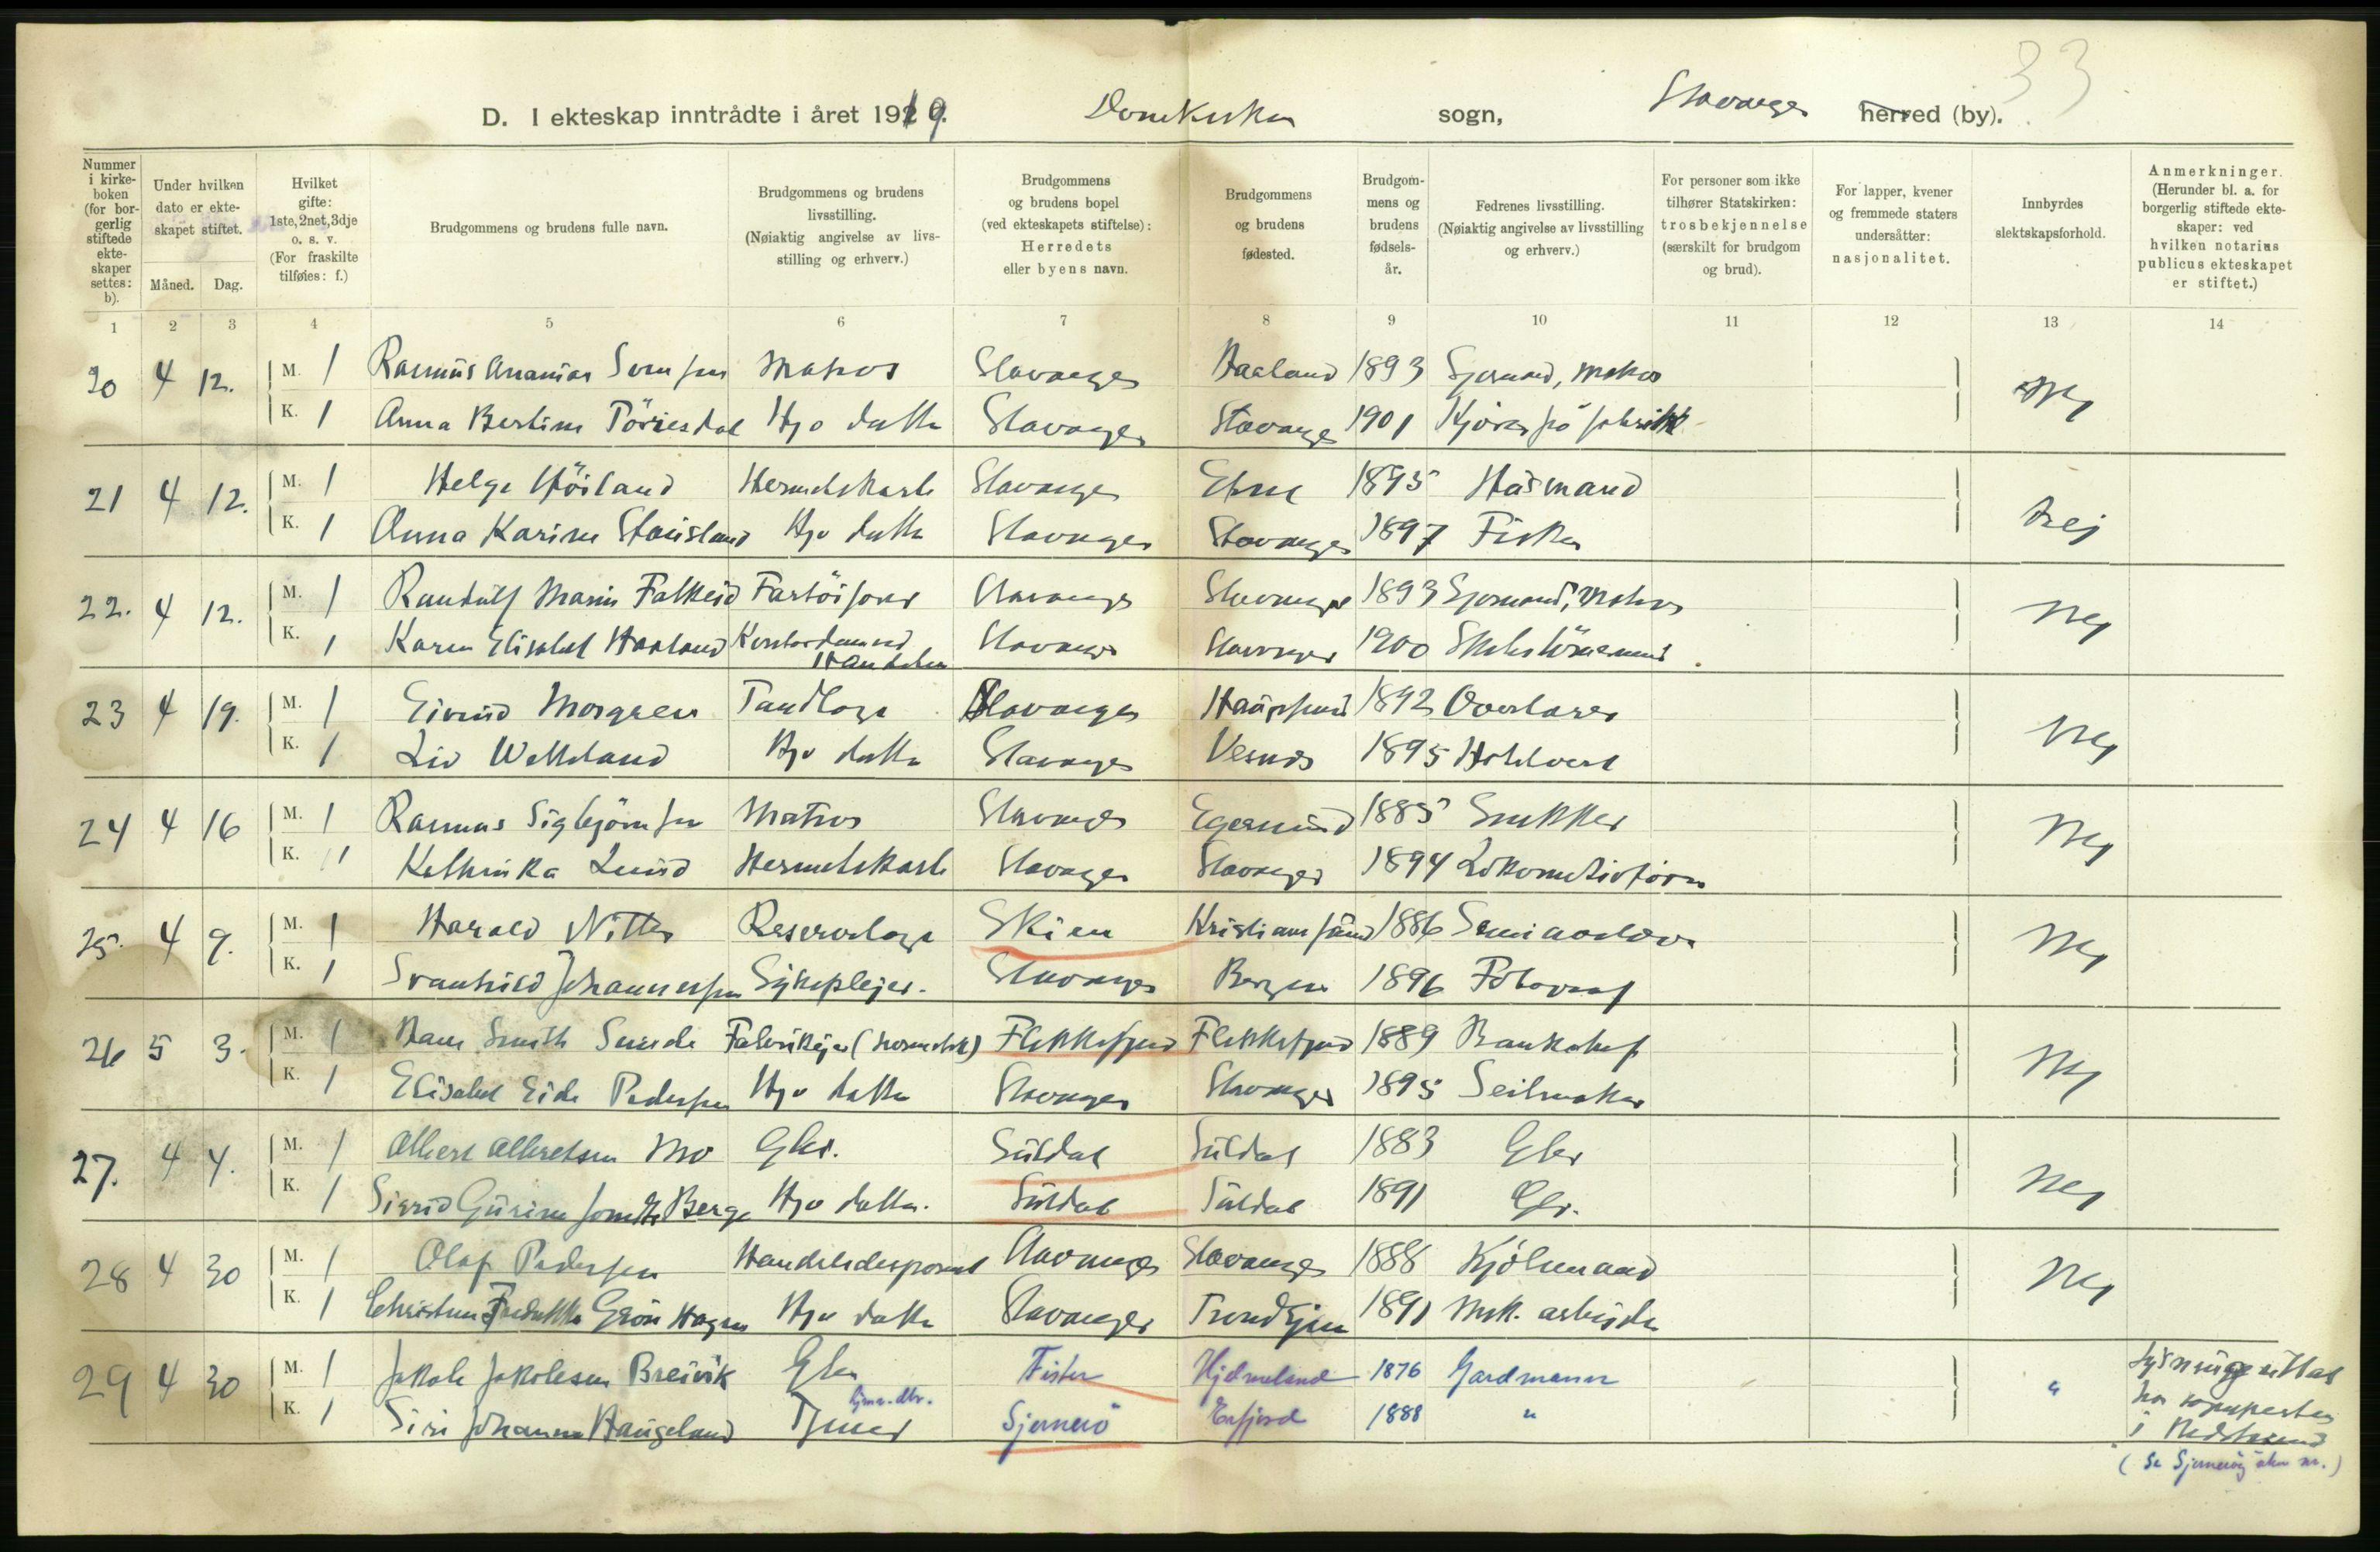 33
D. I ekteskap inntrådte i året 1919. Domkirken sogn, Stavanger herred (by).
Nummer i kirke-boken (for bor-gerlig stiftede ekte-skaper settes: b).
Under hvilken dato er ekte-skapet stiftet.
Måned. Dag.
Hvilket gifte: 1ste, 2net, 3dje o. s. v. (For fraskilte tilføies: f.)
Brudgommens og brudens fulle navn.
Brudgommens og brudens livsstilling. (Nøiaktig angivelse av livs-stilling og erhverv.)
Brudgommens og brudens bopel (ved ekteskapets stiftelse): Herredets eller byens navn.
Brudgommens og brudens fødested.
Brudgom-mens og brudens fødsels-år.
Fedrenes livsstilling. (Nøiaktig angivelse av livsstilling og erhverv.)
For personer som ikke tilhører Statskirken: trosbekjennelse (særskilt for brudgom og brud).
For lapper, kvener og fremmede staters undersåtter: nasjonalitet.
Innbyrdes slektskapsforhold.
Anmerkninger. (Herunder bl. a. for borgerlig stiftede ekte-skaper: ved hvilken notarius publicus ekteskapet er stiftet.)
1 2 3 4 5 6 7 8 9 10 11 12 13 14
20 4 12. M. 1 Rasmus Ananias Svensen Matros Stavanger Haaland 1893 Sjømand, matros Nej
K. 1 Anna Bertine Törresdal Hjo datter Stavanger Stavanger 1901 Kjører på fabrikk
21 4 12. M. 1 Helge Höiland Hermetikarb Stavanger Etne 1895 Husmand Nej
K. 1 Anna Karine Stausland Hjo datter Stavanger Stavanger 1897 Fisker
22. 4 12. M. 1 Randulf Marin Falkeid Stavanger Stavanger 1893 Sjømand, Matros Nej
K. 1 Karen Elisabet Haaland Kontordame ved Handelen Stavanger Stavanger 1900
23 4 19. M. 1 Eivind Morgren Tandlæge Stavanger 1892 Overlærer Nej
K. 1 Liv Hjo datter Stavanger 1895
24 4 16 M. 1 Rasmus Sigbjörnsen Matros Stavanger Egersund 1885 Snekker Nej
K. 1 Kathinka Lund Hermetikarb Stavanger Stavanger 1894 Lokomotivfører
25. 4 9. M. 1 Harald Nitter Reservelæge Skien Kristiansund 1886 Nej
K. 1 Svanhild Johannessen Sykeplejer. Stavanger Bergen 1896 Fotograf
26 5 3. M. 1 Hans Smith Sunde Fabrikejer (hermetik) Flekkefjord Flekkefjord 1889 Bankchef Nej
K. 1 Elisabet Eide Pedersen Hjo datter Stavanger Stavanger 1895 Seilmaker
27. 4 4. M. 1 Albert Albretsen Mo Gbr. Süldal Süldal 1883 Gbr Nej
K. 1 Sigrid Gürine Berge Hjo datter. Süldal Süldal 1891 Gbr.
28 4 30 M. 1 Olaf Pedersen Stavanger Stavanger 1888 Kjölmand Nej
K. 1 Grön Hagen Hjo datter Stavanger Trondhjem 1891 Mek. arbeider
29 4 30 M. 1 Jakob Jakobsen Breivik Gbr Fister Hjelmeland 1876 Gardmann "
K. 1 Siri Johanna Haugeland Tjener Gjmr. dtr. Sjernerö Erfjord 1888 "
hos sognepresten
i Nedstrand
(Se Sjernerøy )